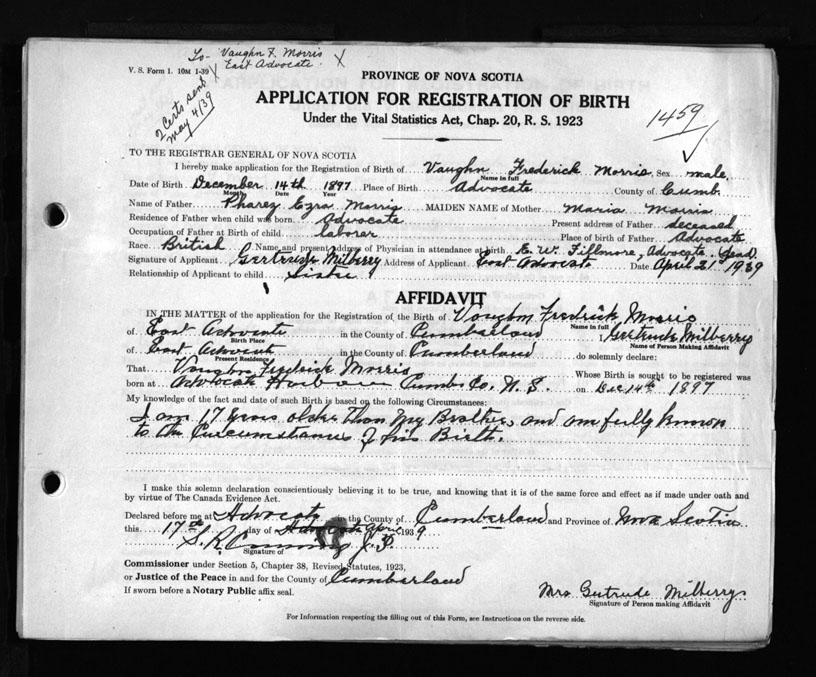 To- Vaughn F. Morris X
East Advocate. X
V. S. Form 1. 10M 1-39
2 Certs sent
May 4/39
PROVINCE OF NOVA SCOTIA
APPLICATION FOR REGISTRATION OF BIRTH
Under the Vital Statistics Act, Chap. 20, R. S. 1923
1459
TO THE REGISTRAR GENERAL OF NOVA SCOTIA
I hereby make application for the Registration of Birth of Vaughn Frederick Morris Sex male
Name in full
Date of Birth December 14th 1897 Place of Birth Advocate County of Cumb.
Month Date Year
Name of Father Pharez Ezra Morris MAIDEN NAME of Mother Maria Morris
Residence of Father when child was born. Advocate Present address of Father deceased
Occupation of Father at Birth of child laborer Place of birth of Father Advocate
Race British Name and present address of Physician in attendance at birth. E. W. Fillmore, Advocate dead.
Signature of Applicant Gertrude Milberry Address of Applicant East Advocate Date April 21st 1939
Relationship of Applicant to child Sister
AFFIDAVIT
IN THE MATTER of the application for the Registration of the Birth of Vaughn Fredrick Morris
Name in full
of East Advocate in the County of Cumberland I Gertrude Milberry
Birth Place Name of Person Making Affidavit
of East Advocate in the County of Cumberland do solemnly declare:
Present Residence
That Vaughn Fredrick Morris Whose Birth is sought to be registered was
born at Advocate Harbour Cumb. Co. N. S. on Dec 14th 1897
My knowledge of the fact and date of such Birth is based on the following Circumstances:
I am 17 years older than my Brother, and am fully known
to the Circumstances of his Birth.
I make this solemn declaration conscientiously believing it to be true, and knowing that it is of the same force and effect as if made under oath and
by virtue of The Canada Evidence Act.
Declared before me at Advocate in the County of Cumberland and Province of Nova Scotia
this 17th day of Advocate April 1939
S. R. J. P.
Signature of
Commissioner under Section 5, Chapter 38, Revised Statutes, 1923,
or Justice of the Peace in and for the County of Cumberland
If sworn before a Notary Public affix seal.
Mrs Gertrude Milberry
Signature of Person making Affidavit
For Information respecting the filling out of this Form, see Instructions on the reverse side.